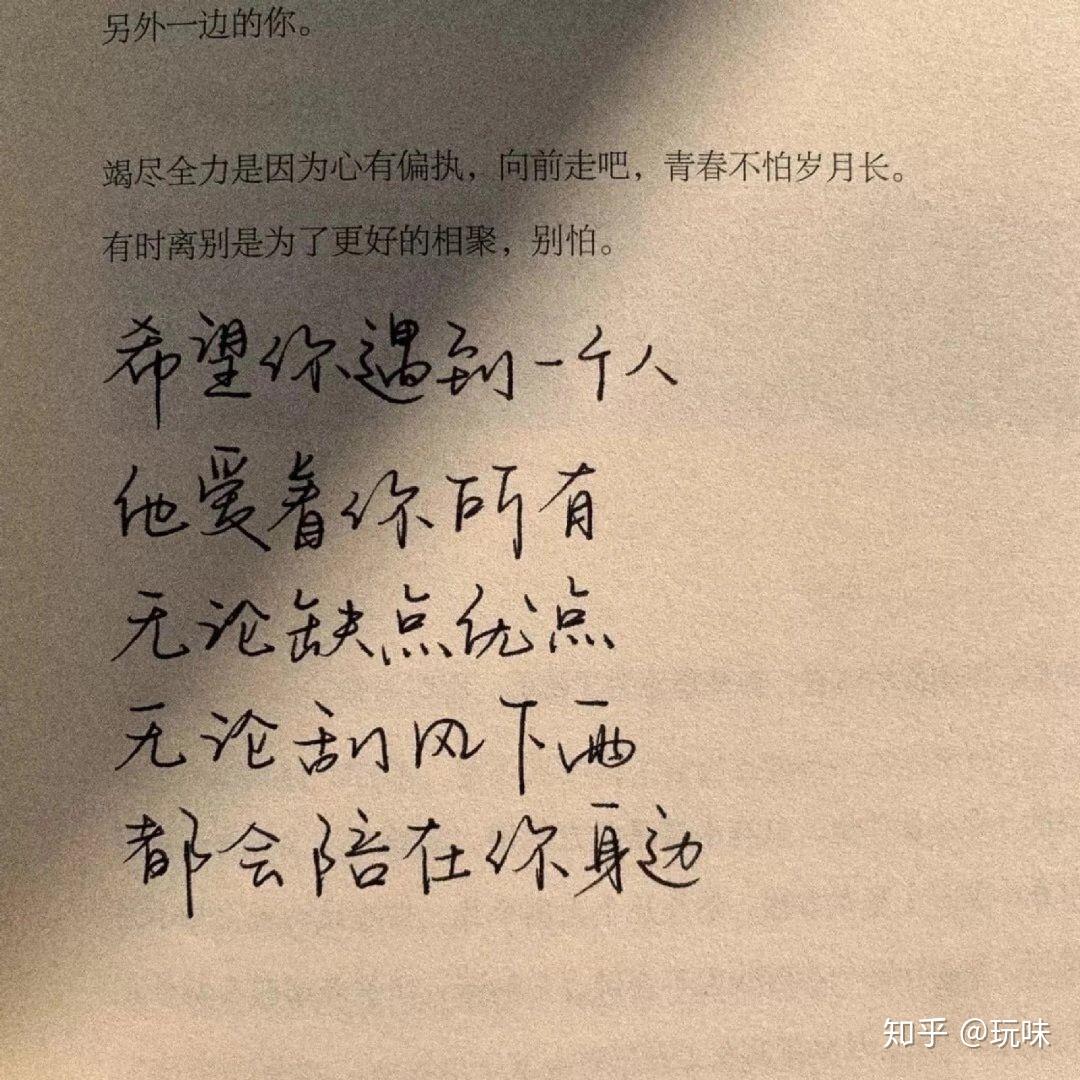 另外一边的你。
竭尽全力是因为心有偏执，向前走吧，青春不怕岁月长。
有时离别是为了更好的相聚，别怕。
希望你遇到一个人
他爱着你所有
无论缺点优点
无论刮风下雨
都会陪在你身边
知乎 @玩味